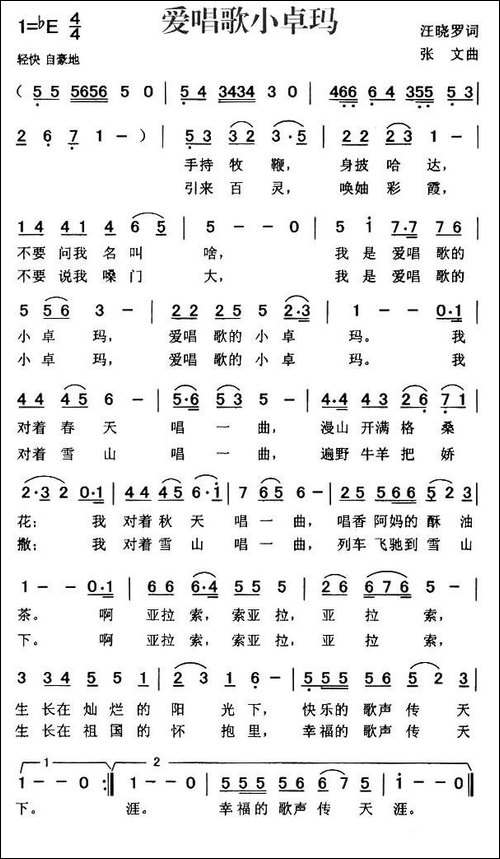 爱唱歌小卓玛
1=♭E 4/4
汪晓罗词
轻快 自豪地
张 文曲
( 5 5 5656 5 0 | 5 4 3434 3 0 | 466 6 4 355 5 3 |
2 6 7 1 - ) | 5 3 3 2 3·5 | 2 2 2 3 1 - |
手持 牧 鞭, 身披 哈 达,
引来 百 灵, 唤妯 彩 霞,
1 4 4 1 4 6 5 | 5 - - 0 | 5 i 7·7 7 6 |
不要 问我 名 叫 啥, 我 是 爱唱 歌的
不要 说我 嗓 门 大, 我 是 爱唱 歌的
5 5 6 3 - | 2 2 2 5 5 2 3 | 1 - - 0·1 |
小 卓 玛, 爱唱 歌的 小 卓 玛。 我
小 卓 玛, 爱唱 歌的 小 卓 玛。 我
4 4 4 5 6 - | 5·6 5 3 5 - | 4·4 4 3 2 6 7 1 |
对着 春 天 唱 一 曲, 漫山 开满 格 桑
对着 雪 山 唱 一 曲, 遍野 牛羊 把 娇
2·3 2 0·1 | 4 4 4 5 6·i | 7 6 5 6 - | 2 5 5665 5 2 |
花; 我 对着 秋 天 唱 一 曲, 唱香 阿妈的 酥 油
撒; 我 对着 雪 山 唱 一 曲, 列车 飞驰到 雪 山
1 - - 0·1 | 6 6 6·4 5 5 5 | 2 6 6 7 6 5 |
茶。 啊 亚拉 索, 索亚 拉, 亚 拉 索,
下。 啊 亚拉 索, 索亚 拉, 亚 拉 索,
3 3 4 5 5 1 | 2 2 3 6 - | 5 5 5 5 6 5 2 |
生 长在 灿 烂 的 阳 光 下, 快乐的 歌声 传 天
生 长在 祖 国 的 怀 抱 里, 幸福的 歌声 传 天
1 2
1 - - 0 :‖ 1 - - 0 | 5 5 5 5 6 5 2 | i - - 0 ‖
下。 涯。 幸福的 歌声 传 天 涯。